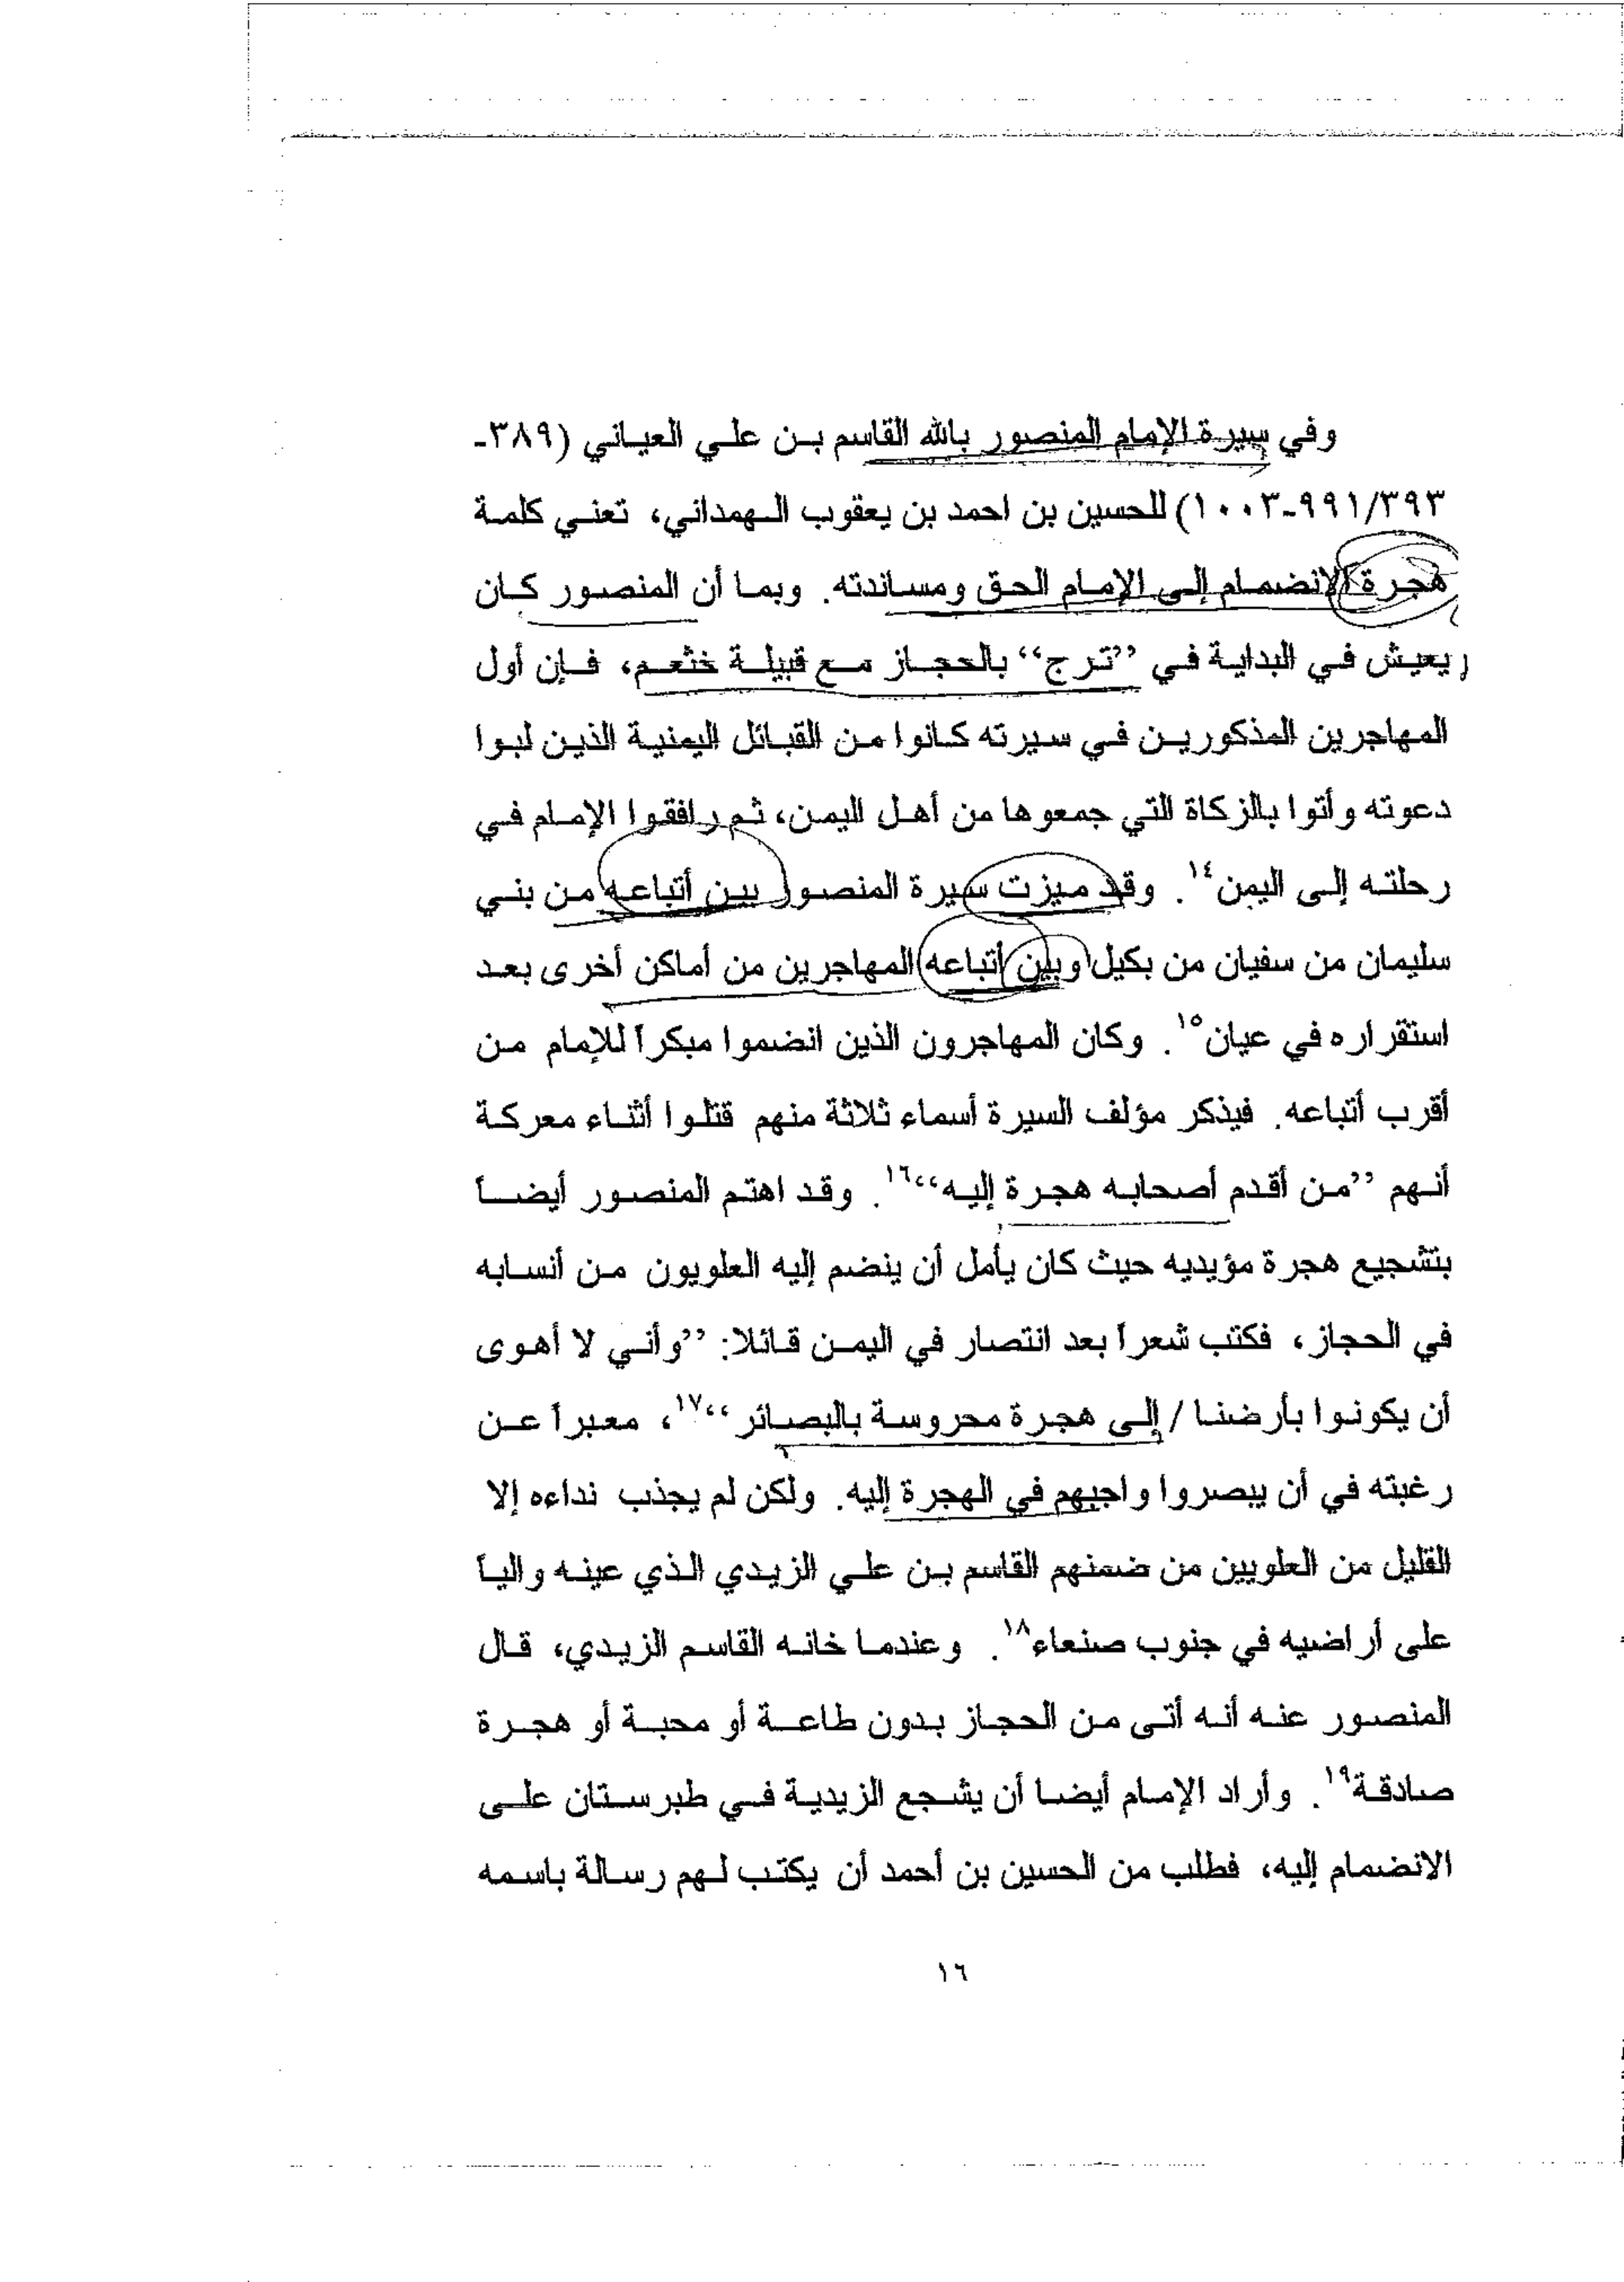 وفي سيرة الإمام المنصور بالله القاسم بن علي العياني (٣٨٩-
٣٩٣/٩٩١-١٠٠٣) للحسين بن احمد بن يعقوب الهمداني، تعني كلمة
هجرة الانضمام إلى الإمام الحق ومساندته. وبما أن المنصور كان
يعيش في البداية في ”ترج“ بالحجاز مع قبيلة خثعم، فإن أول
المهاجرين المذكورين في سيرته كانوا من القبائل اليمنية الذين لبوا
دعوته وأتوا بالزكاة التي جمعوها من أهل اليمن، ثم رافقوا الإمام في
رحلته إلى اليمن١٤. وقد ميزت سيرة المنصور بين أتباعه من بني
سليمان من سفيان من بكيل وبين أتباعه المهاجرين من أماكن أخرى بعد
استقراره في عيان١٥. وكان المهاجرون الذين انضموا مبكراً للإمام من
أقرب أتباعه. فيذكر مؤلف السيرة أسماء ثلاثة منهم قتلوا أثناء معركة
أنهم ”من أقدم أصحابه هجرة إليه“١٦. وقد اهتم المنصور أيضاً
بتشجيع هجرة مؤيديه حيث كان يأمل أن ينضم إليه العلويون من أنسابه
في الحجاز، فكتب شعراً بعد انتصار في اليمن قائلا: ”وأني لا أهوى
أن يكونوا بأرضنا / إلى هجرة محروسة بالبصائر“١٧، معبراً عن
رغبته في أن يبصروا واجبهم في الهجرة إليه. ولكن لم يجذب نداءه إلا
القليل من العلويين من ضمنهم القاسم بن علي الزيدي الذي عينه والياً
على أراضيه في جنوب صنعاء١٨. وعندما خانه القاسم الزيدي، قال
المنصور عنه أنه أتى من الحجاز بدون طاعة أو محبة أو هجرة
صادقة١٩. وأراد الإمام أيضا أن يشجع الزيدية في طبرستان على
الانضمام إليه، فطلب من الحسين بن أحمد أن يكتب لهم رسالة باسمه
١٦